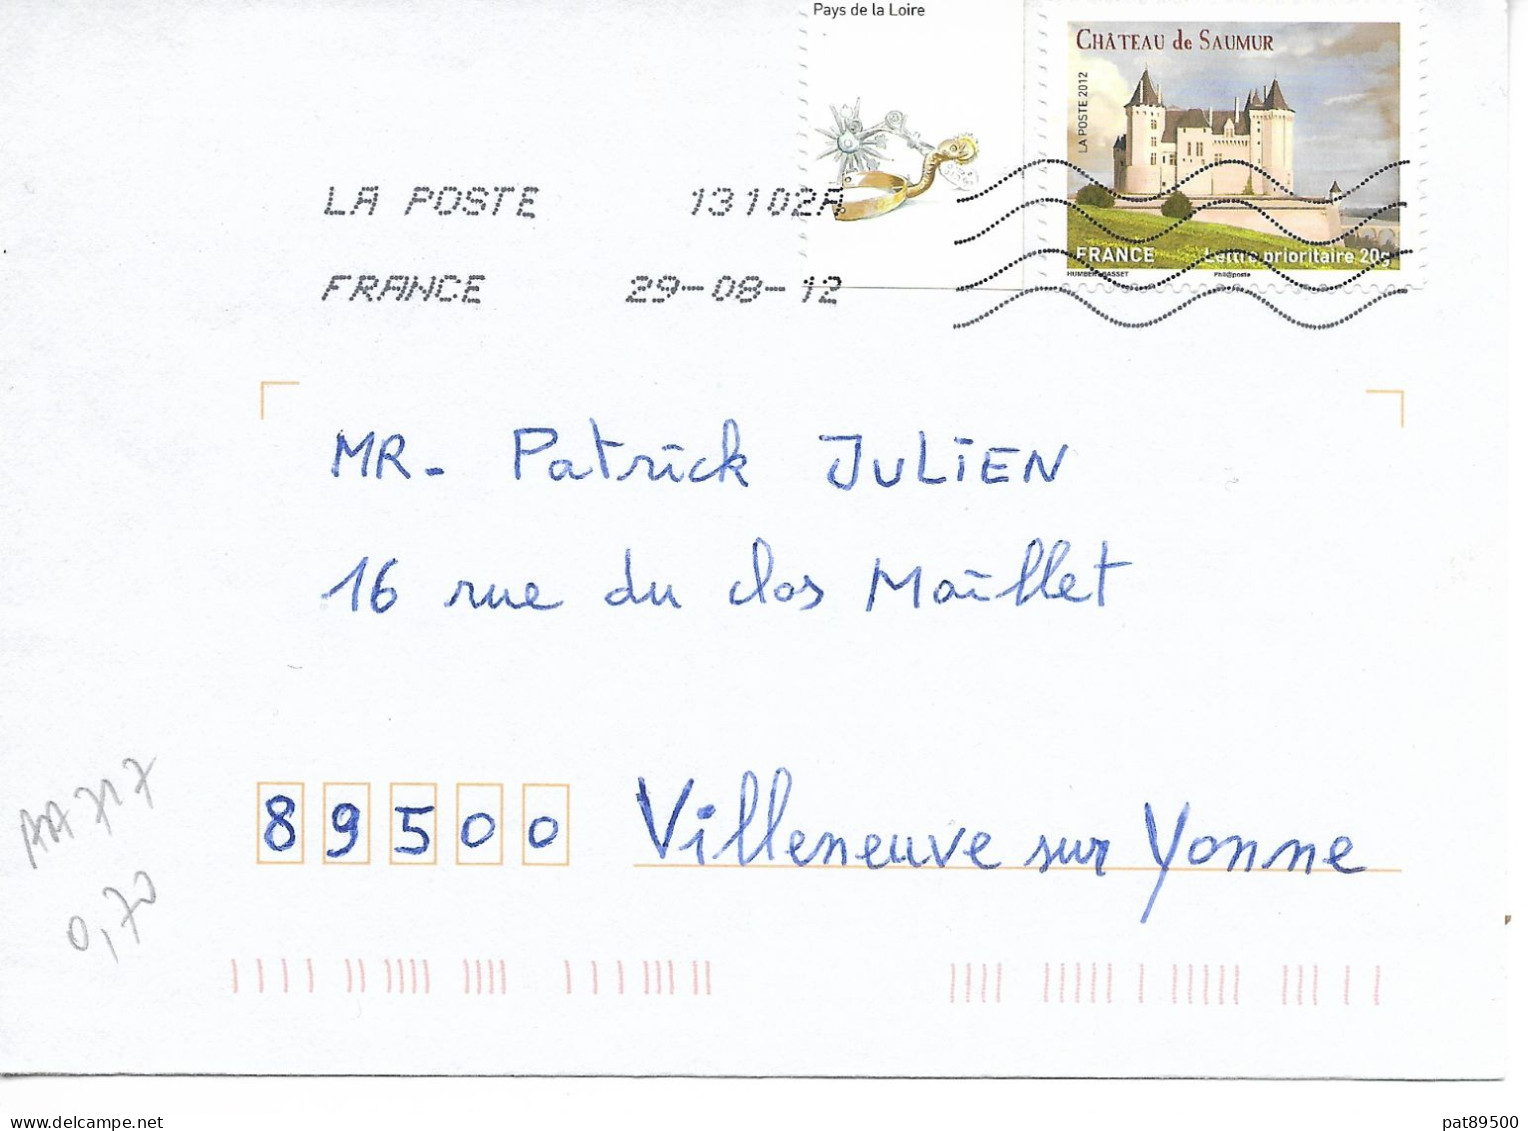 Pays de la Loire
CHÂTEAU de SAUMUR
LA POSTE 2012
LA POSTE 13102A
FRANCE Lettre prioritaire 20g
HUMBERT BASSET Phil@poste
FRANCE 29-08-12
MR. Patrick JULIEN
16 rue du clos Maillet
89500 Villeneuve sur Yonne
AA 717
0,70
www.delcampe.net pat89500